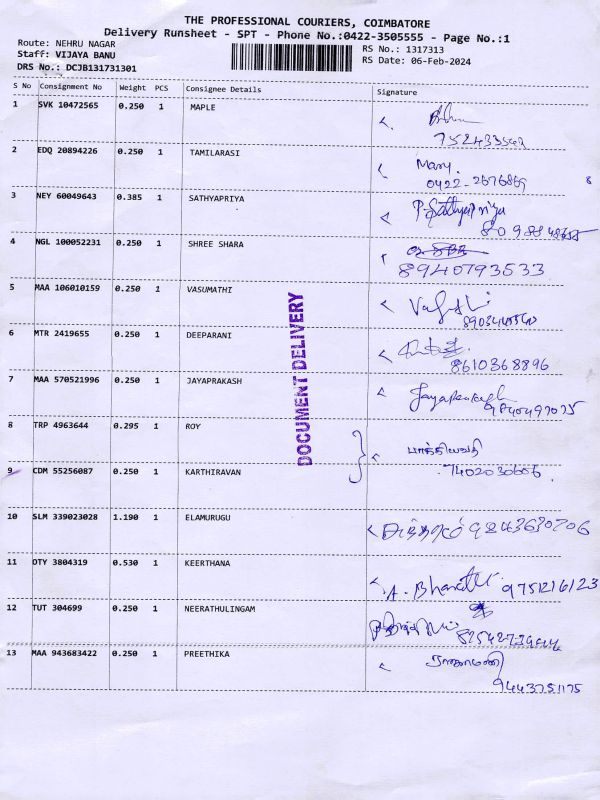 THE PROFESSIONAL COURIERS, COIMBATORE
Delivery Runsheet - SPT - Phone No.:0422-3505555 - Page No.:1
Route: NEHRU NAGAR
Staff: VIJAYA BANU
DRS No.: DCJB131731301
RS No.: 1317313
RS Date: 06-Feb-2024
S No Consignment No Weight PCS Consignee Details Signature
1 SVK 10472565 0.250 1 MAPLE
2 EDQ 20894226 0.250 1 TAMILARASI Mary.
0422-2676869
3 NEY 60049643 0.385 1 SATHYAPRIYA P. Sathyapriya
4 NGL 100052231 0.250 1 SHREE SHARA
8940793533
5 MAA 106010159 0.250 1 VASUMATHI
6 MTR 2419655 0.250 1 DEEPARANI
8610368896
7 MAA 570521996 0.250 1 JAYAPRAKASH Jayaprakash
9840497075
8 TRP 4963644 0.295 1 ROY
9 CDM 55256087 0.250 1 KARTHIRAVAN 7402030606
10 SLM 339023028 1.190 1 ELAMURUGU
11 OTY 3804319 0.530 1 KEERTHANA A. Bharathi 9751216123
12 TUT 304699 0.250 1 NEERATHULINGAM
13 MAA 943683422 0.250 1 PREETHIKA
9443751175
DOCUMENT DELIVERY